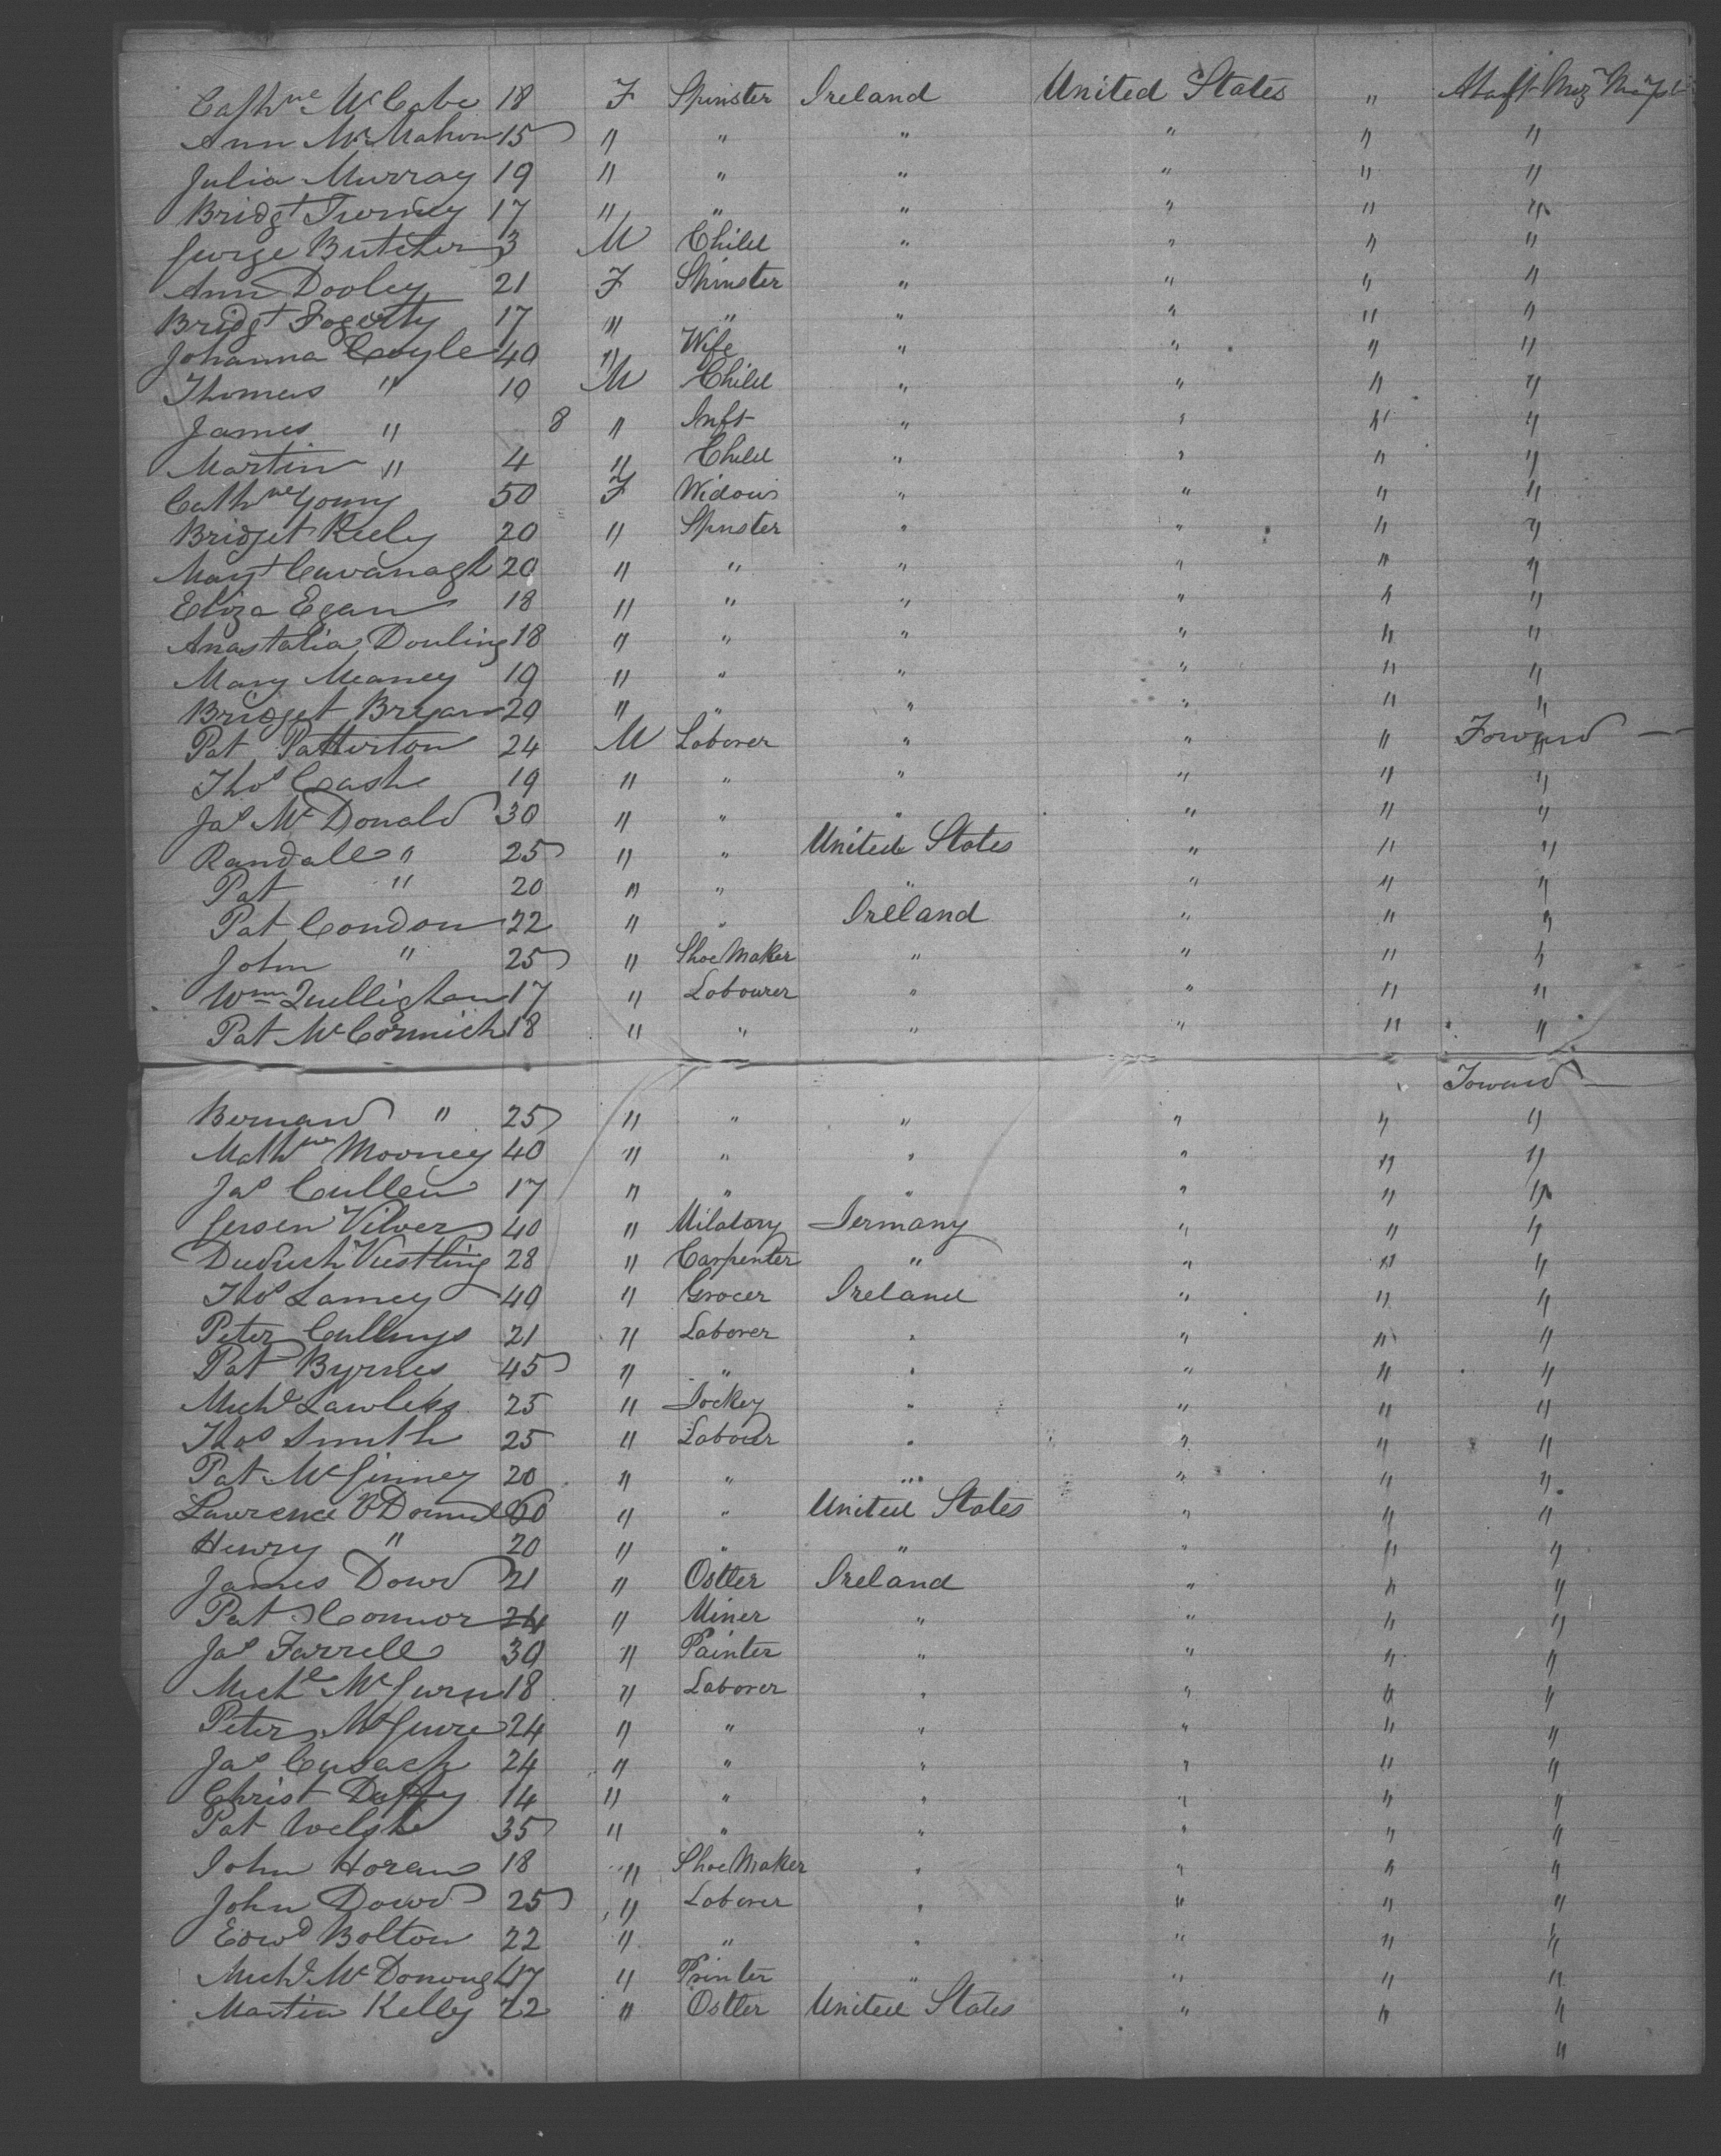 Cathne McCabe 18 F Spinster Ireland United States "
Ann McMahon 15 " " " " " "
Julia Murray 19 " " " " " "
Bridgt Turney 17 " " " " " "
George Butcher 3 M Child " " " "
Ann Dooley 21 F Spinster " " " "
Bridgt Fogerty 17 " " " " " "
Johanna Coyle 40 " Wife " " " "
Thomas " 10 M Child " " " "
James " 8 " Inft " " " "
Martin " 4 " Child " " " "
Cathne Young 50 F Widow " " " "
Bridget Keely 20 " Spinster " " " "
Mayt Cavanagh 20 " " " " " "
Eliza Egan 18 " " " " " "
Anastatia Douling 18 " " " " " "
Mary Meaney 19 " " " " " "
Bridget Bryan 20 " " " " " "
Pat Patterton 24 M Laborer " " " Forward "
Thos Cash 19 " " " " " "
Jas McDonald 30 " " " " " "
Randall " 25 " " United States " " "
Pat " 20 " " " " " "
Pat Condon 22 " " Ireland " " "
John " 25 " Shoe Maker " " " "
Wm Quellighan 17 " Labourer " " " "
Pat McCormick 18 " " " " " "
Forward
Bernard " 25 " " " " " "
Mathw Mooney 40 " " " " " "
Jas Cullen 17 " " " " " "
Gersen Vilver 40 " Milatary Germany " " "
Vustling 28 " Carpenter " " " "
Thos Lamey 40 " Grocer Ireland " " "
Peter 21 " Laborer " " " "
Pat Byrnes 45 " " " " " "
Michl Lawless 25 " Jockey " " " "
Thos Smith 25 " Labourer " " " "
Pat McGinney 20 " " " " " "
Lawrence 60 " " United States " " "
Henry " 20 " " " " " "
James Dowd 21 " Ostler Ireland " " "
Pat Connor 24 " Miner " " " "
Jas Farrell 30 " Painter " " " "
Michl McGurn 18 " Laborer " " " "
Peter McGuire 24 " " " " " "
Jas Cusack 24 " " " " " "
Christ Duffy 14 " " " " " "
Pat Welsh 35 " " " " " "
John Horan 18 " Shoe Maker " " " "
John Dowd 25 " Laborer " " " "
Edwd Bolton 22 " " " " " "
Michl McDonough 17 " Printer " " " "
Martin Kelly 22 " Ostler United States " " "
"